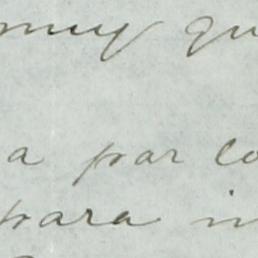 muy qu
a par co
para in